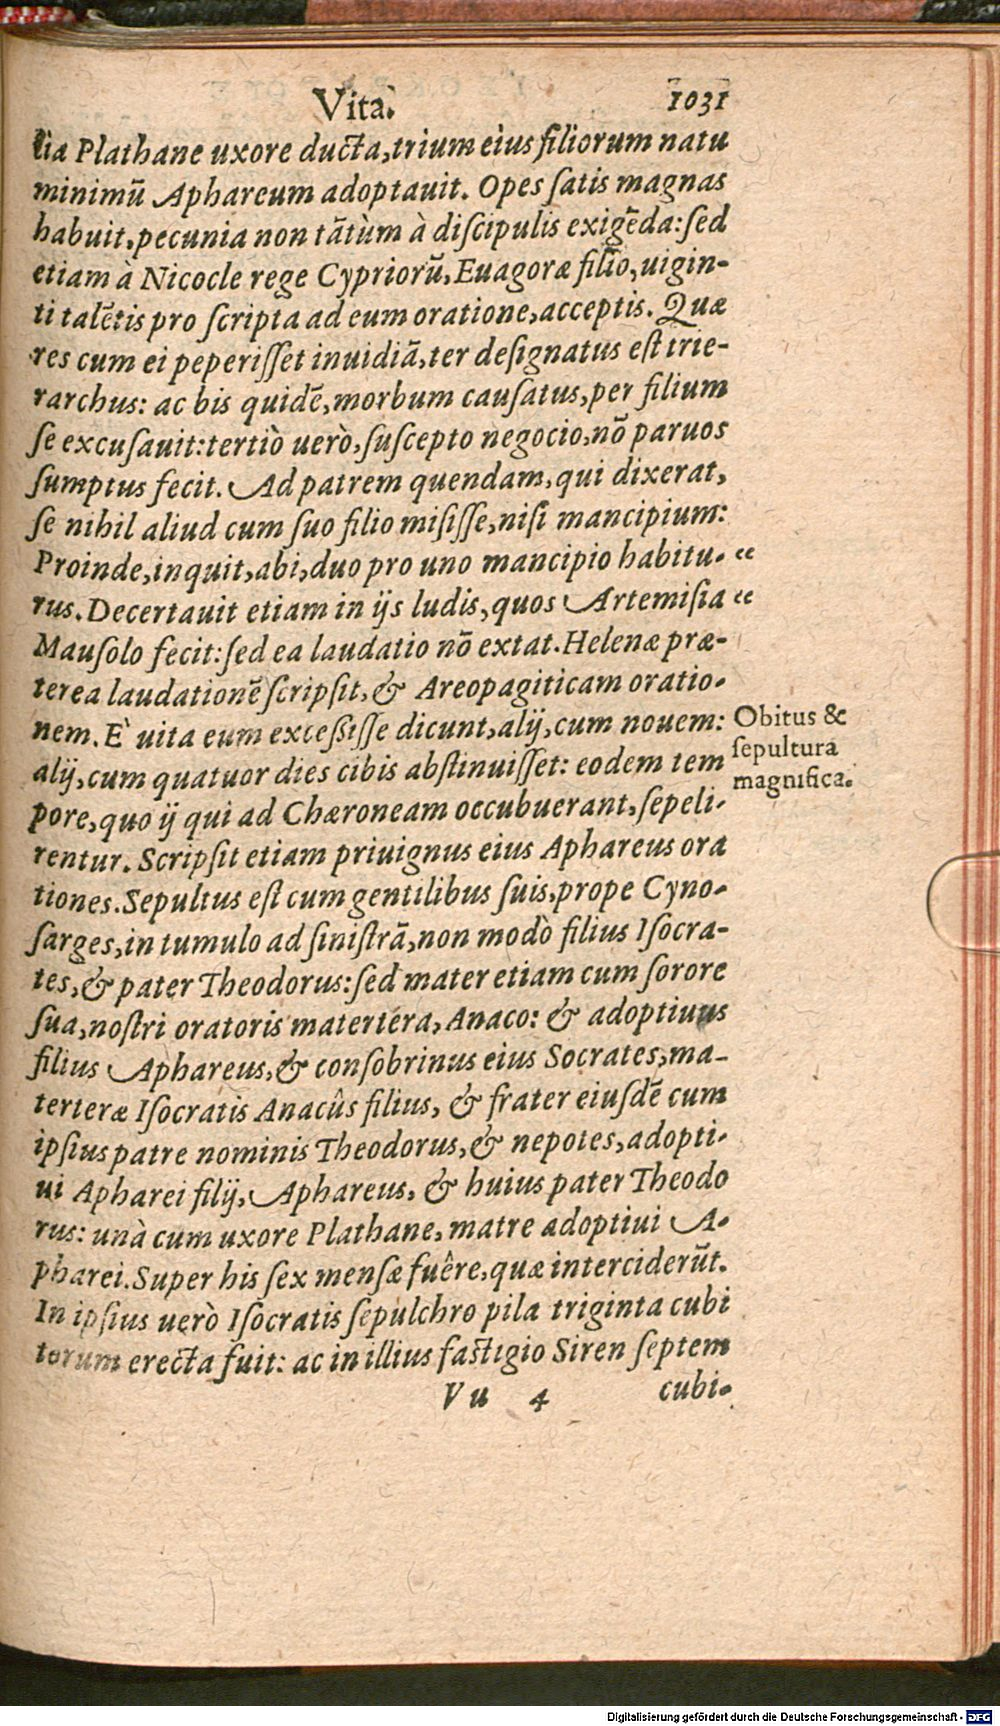 Vita. 1031
lia Plathane uxore ducta, trium eius filiorum natu
minimū Aphareum adoptauit. Opes ſatis magnas
habuit, pecunia non tātùm à diſcipulis exigēda: ſed
etiam à Nicocle rege Cypriorū, Euagoræ filio, uigin-
ti talētis pro ſcripta ad eum oratione, acceptis. Quæ
res cum ei peperiſſet inuidiā, ter deſignatus eſt trie-
rarchus: ac bis quidē, morbum cauſatus, per filium
ſe excuſauit: tertiò uerò, ſuſcepto negocio, nō paruos
ſumptus fecit. Ad patrem quendam, qui dixerat,
ſe nihil aliud cum ſuo filio miſiſſe, niſi mancipium:
Proinde, inquit, abi, duo pro uno mancipio habitu- “
rus. Decertauit etiam in ijs ludis, quos Artemiſia “
Mauſolo fecit: ſed ea laudatio nō extat. Helenæ præ-
terea laudationē ſcripſit, & Areopagiticam oratio-
nem. È uita eum exceſſiſſe dicunt, alij, cum nouem:
alij, cum quatuor dies cibis abſtinuiſſet: eodem tem
pore, quo ij qui ad Chæroneam occubuerant, ſepeli-
rentur. Scripſit etiam priuignus eius Aphareus ora
tiones. Sepultus eſt cum gentilibus ſuis, prope Cyno-
ſarges, in tumulo ad ſiniſtrā, non modò filius Iſocra-
tes, & pater Theodorus: ſed mater etiam cum ſorore
ſua, noſtri oratoris matertera, Anaco: & adoptiuus
filius Aphareus, & conſobrinus eius Socrates, ma-
terteræ Iſocratis Anacûs filius, & frater eiuſdē cum
ipſius patre nominis Theodorus, & nepotes, adopti-
ui Apharei filij, Aphareus, & huius pater Theodo
rus: unà cum uxore Plathane, matre adoptiui A-
pharei. Super his ſex menſæ fuêre, quæ interciderūt.
In ipſius uerò Iſocratis ſepulchro pila triginta cubi
torum erecta fuit: ac in illius faſtigio Siren ſeptem
Vu 4 cubi-
Obitus &
ſepultura
magnifica.
Digitalisierung gefördert durch die Deutsche Forschungsgemeinschaft - DFG